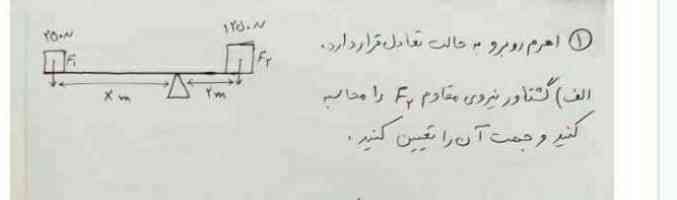 ۱ اهرم روبرو به حالت تعادل قرار دارد.
۲۵۰N
۱۲۵۰N
F۱
F۲
X m
۲ m
الف) گشتاور نیروی مقاوم F۲ را محاسبه
کنید و جهت آن را تعیین کنید.